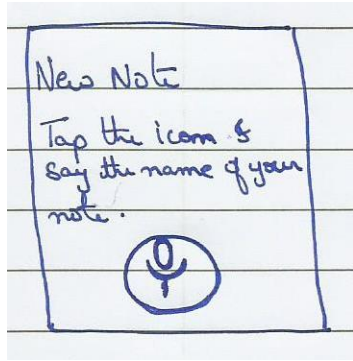 New Note
Tap the icon &
say the name of your
note.